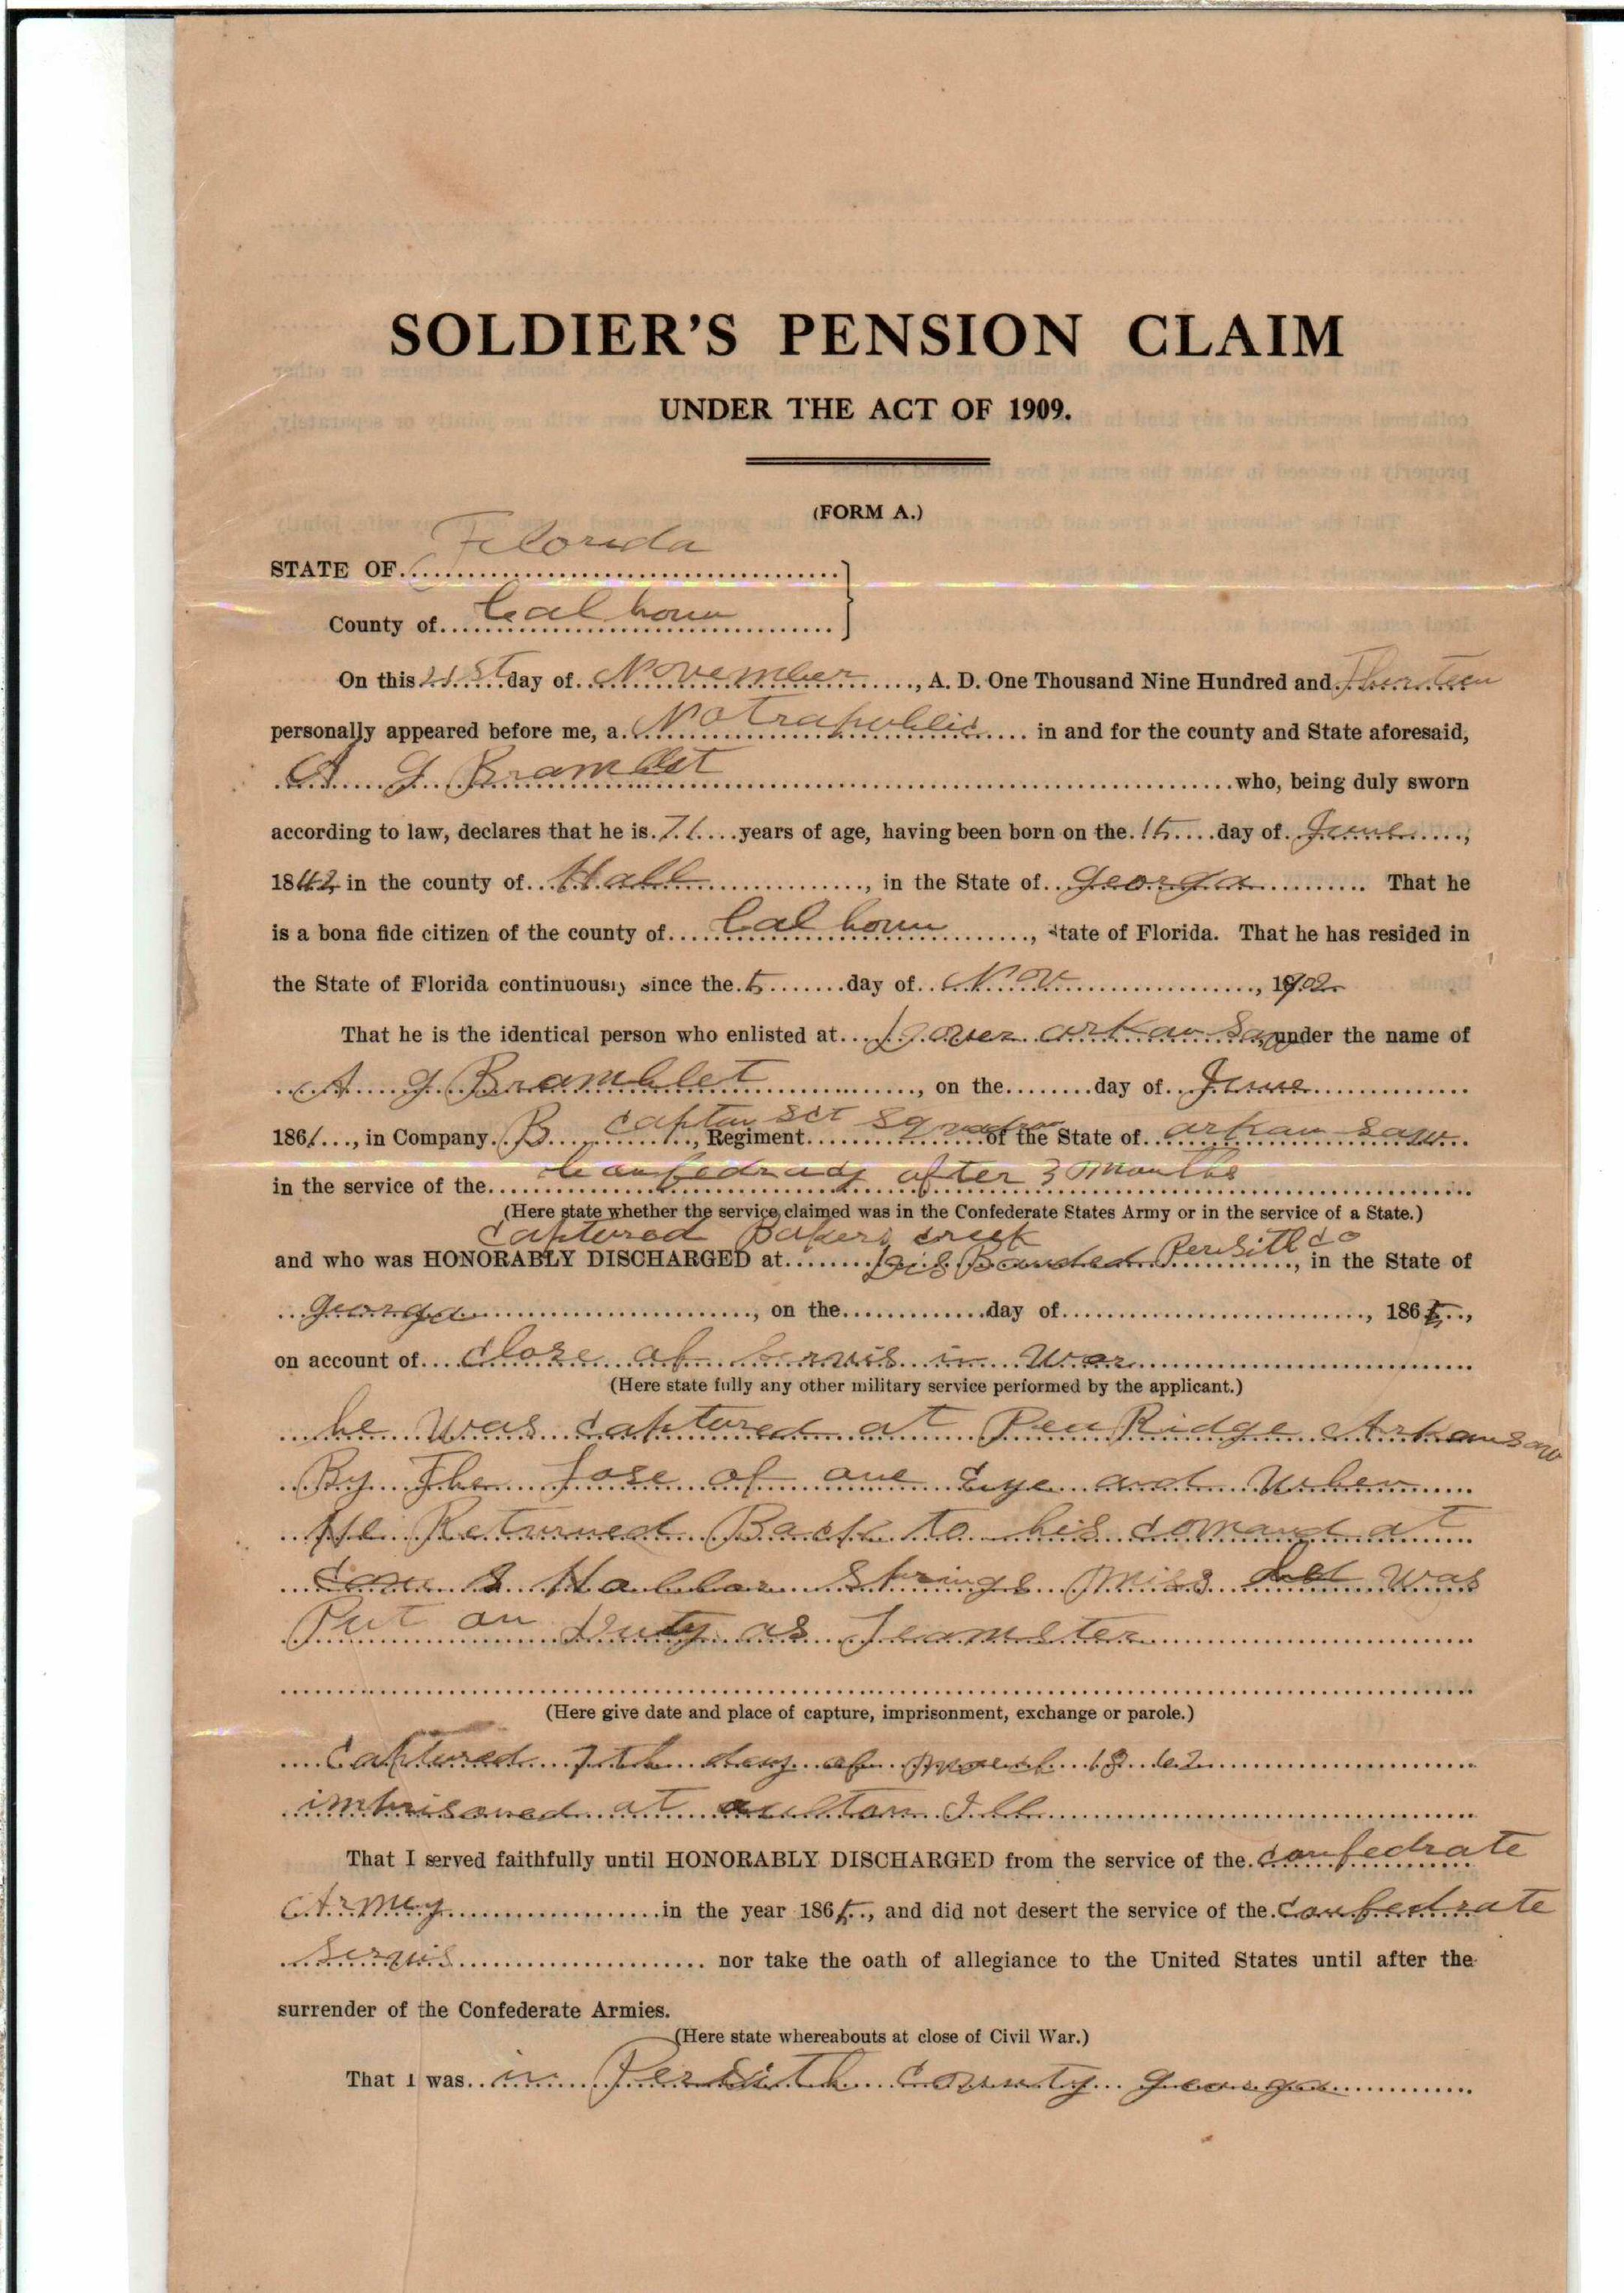 SOLDIER'S PENSION CLAIM
UNDER THE ACT OF 1909.
(FORM A.)
STATE OF Florida
County of Calhoun
On this 21st day of November, A. D. One Thousand Nine Hundred and Thirteen
personally appeared before me, a Notrapublic in and for the county and State aforesaid,
A G Bramblet who, being duly sworn
according to law, declares that he is 71 years of age, having been born on the 15 day of June,
1842 in the county of Hall, in the State of Georga That he
is a bona fide citizen of the county of Calhoun, State of Florida. That he has resided in
the State of Florida continuously since the 5 day of Nov, 1902
That he is the identical person who enlisted at Arkansaw under the name of
A G Bramblet, on the day of June
1861, in Company B Captan Squadron, Regiment of the State of Arkansaw
in the service of the Confedracy after 3 months
(Here state whether the service claimed was in the Confederate States Army or in the service of a State.)
Captured Bakers Creek
and who was HONORABLY DISCHARGED at Co, in the State of
Georga, on the day of, 1865,
on account of Close of Servis in War
(Here state fully any other military service performed by the applicant.)
he was captured at Pea Ridge Arkansaw
By The Lose of one Eye and When
He Returned Back to his comand at
Springs Miss he was
Put on Duty as Teamster
(Here give date and place of capture, imprisonment, exchange or parole.)
Captured 7th day of March 1862
imprisoned at aulton Ill
That I served faithfully until HONORABLY DISCHARGED from the service of the Confedrate
Army in the year 1865, and did not desert the service of the Confedrate
Servis nor take the oath of allegiance to the United States until after the
surrender of the Confederate Armies.
(Here state whereabouts at close of Civil War.)
That I was in County Georga